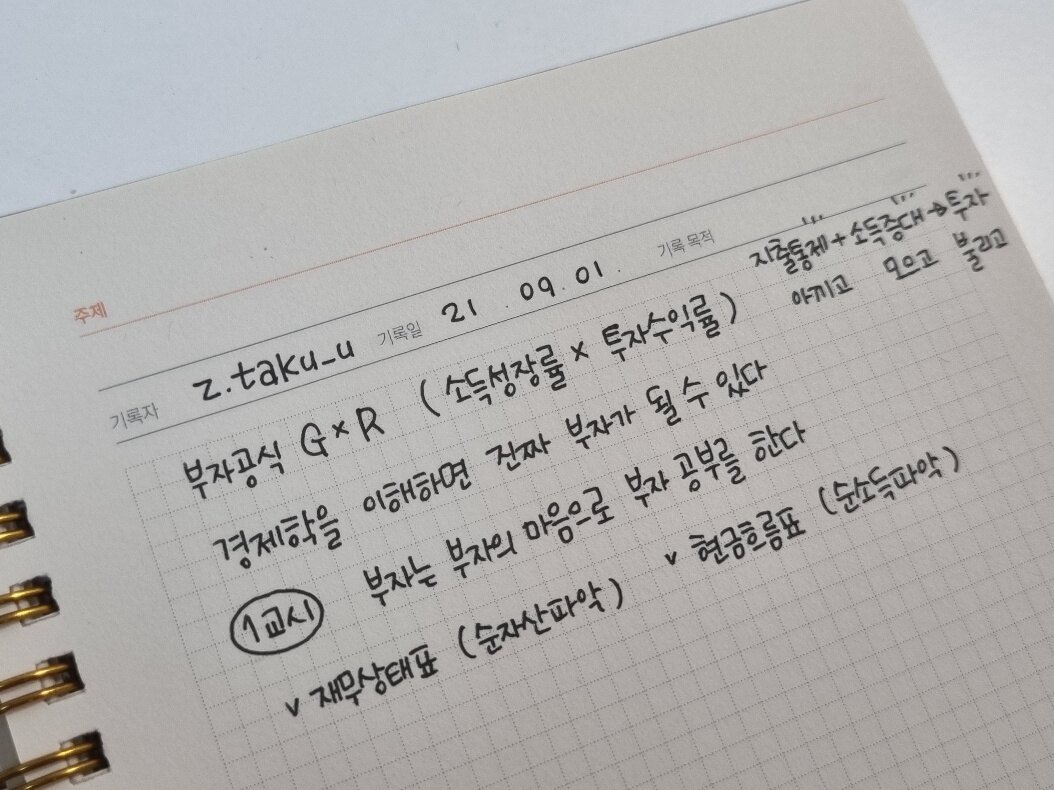 주제
기록자 z.taku_u 기록일 21 . 09 . 01 . 기록 목적
지출통제 + 소득증대 → 투자
아끼고 모으고 불리고
부자공식 G × R ( 소득성장률 × 투자수익률 )
경제학을 이해하면 진짜 부자가 될 수 있다
1교시 부자는 부자의 마음으로 부자 공부를 한다
v 재무상태표 ( 순자산파악 ) v 현금흐름표 ( 순소득파악 )